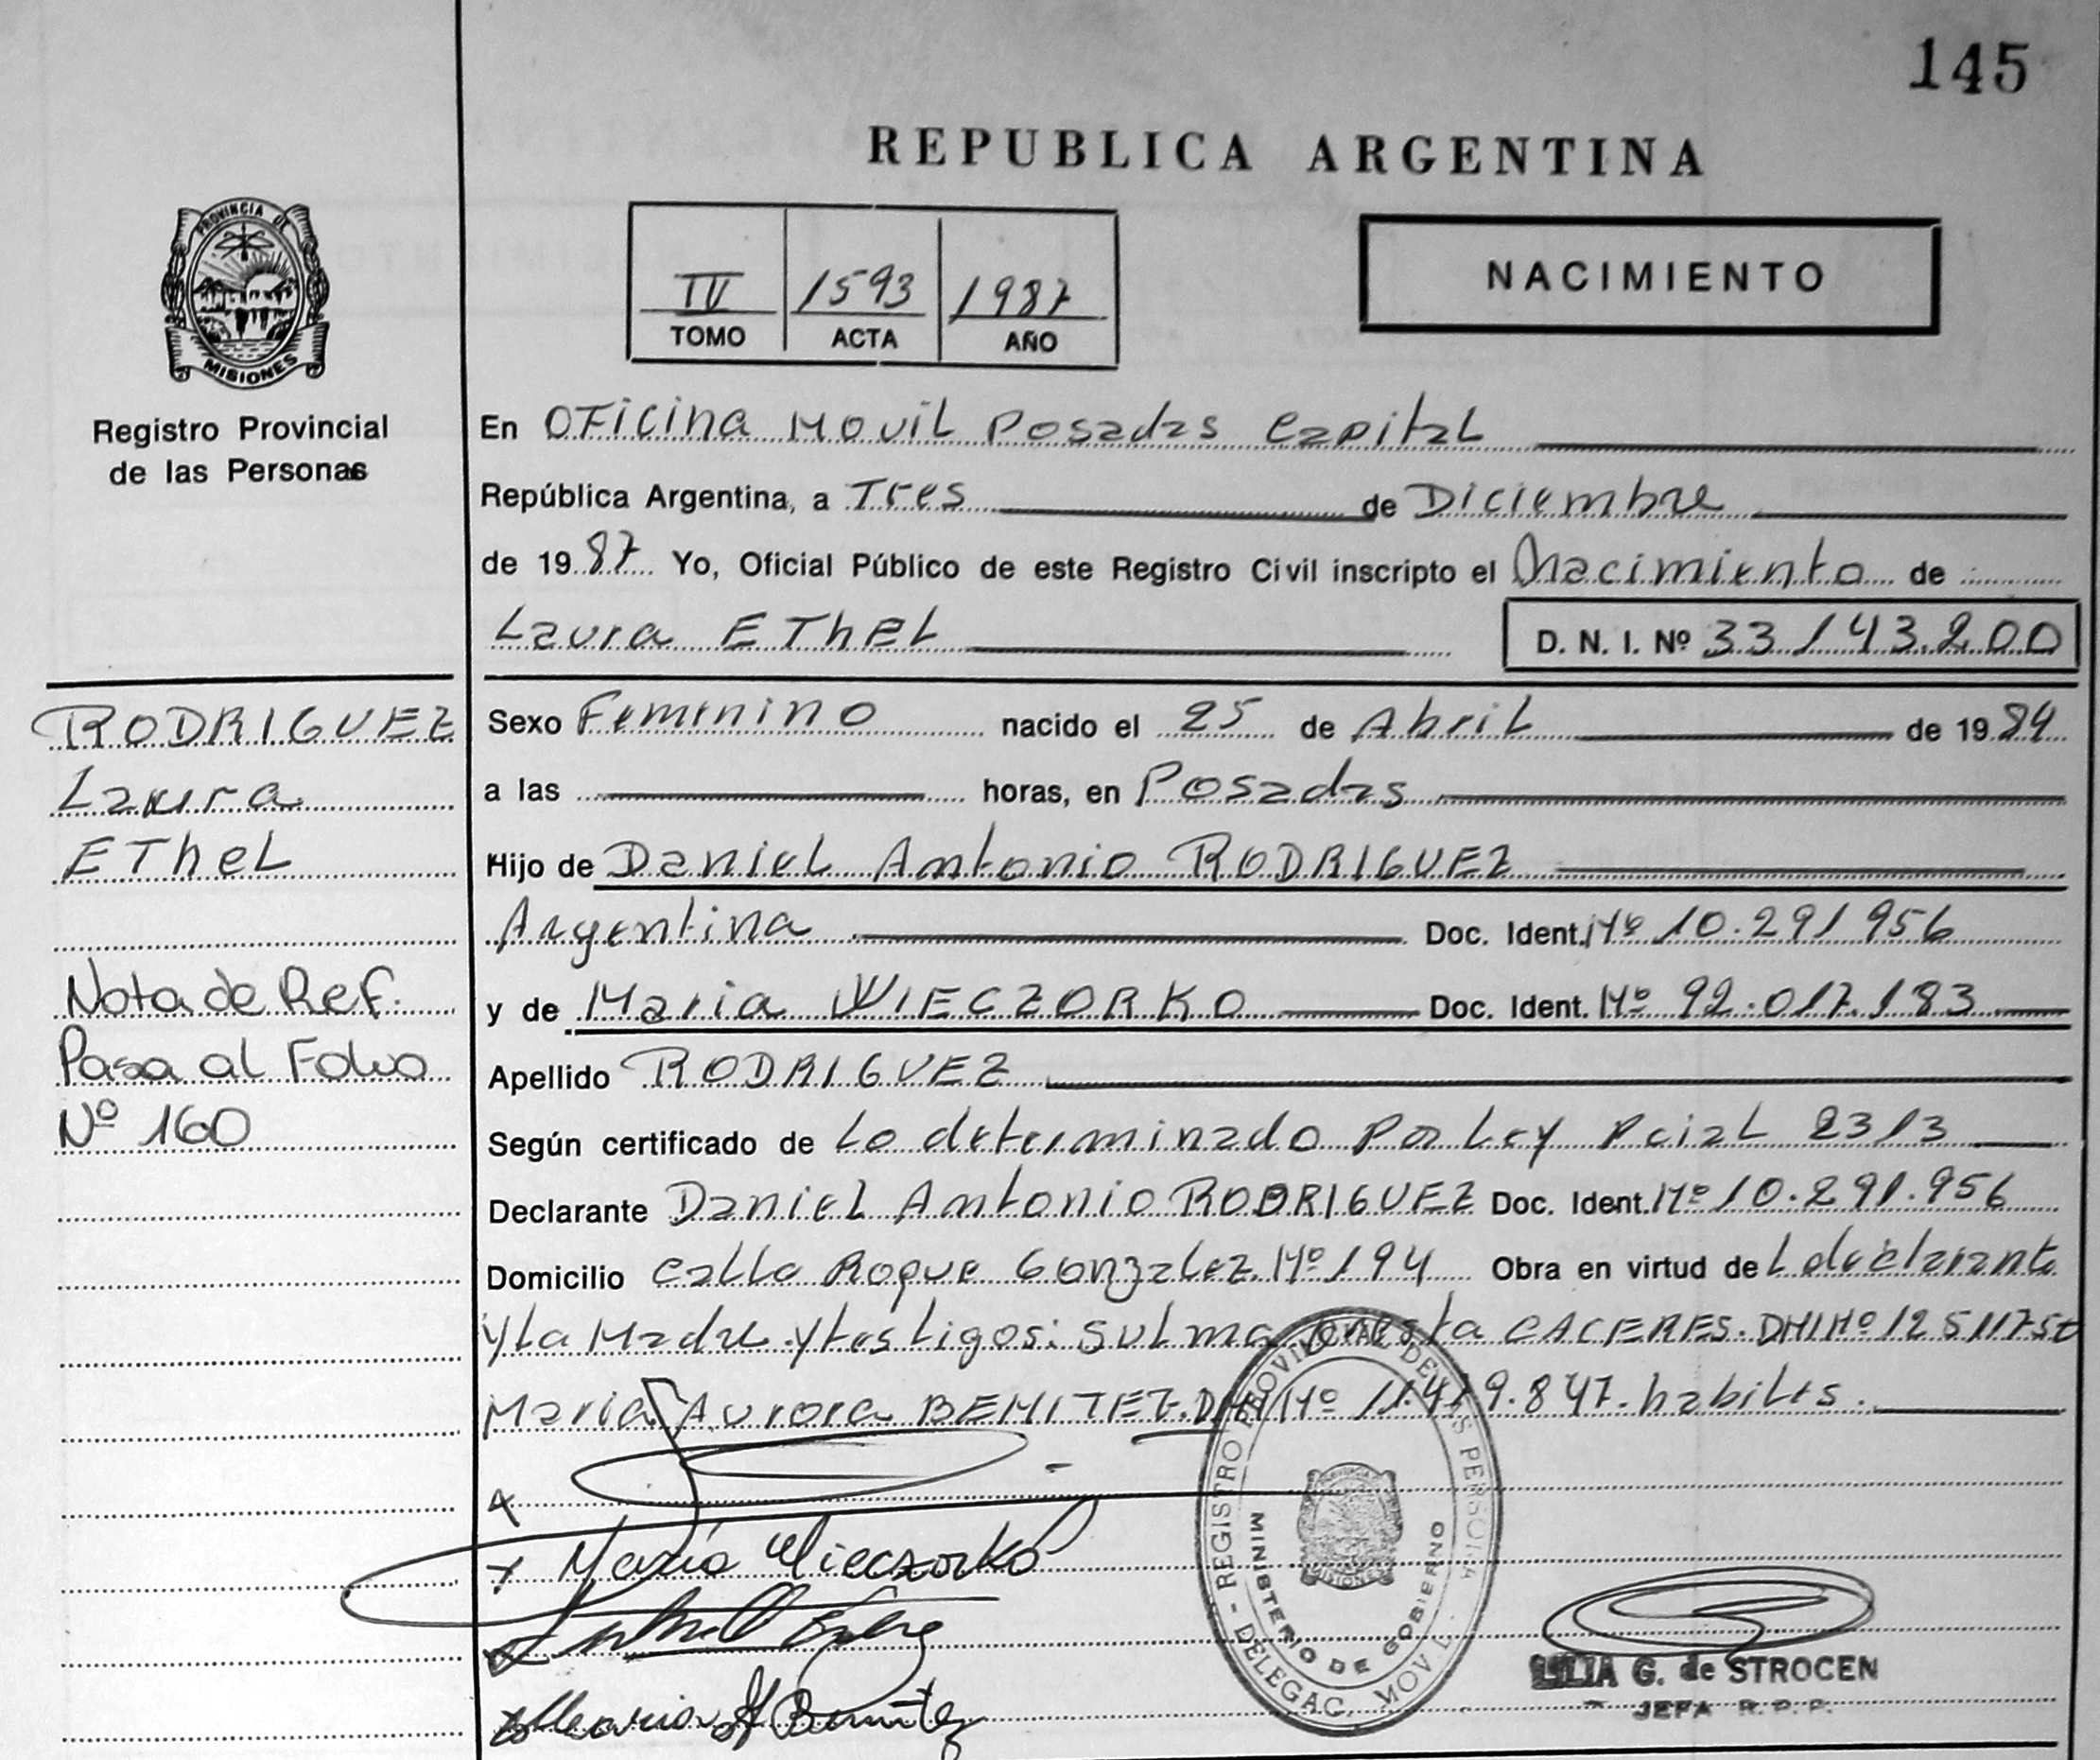 145
REPUBLICA ARGENTINA
PROVINCIA DE
MISIONES
Registro Provincial
de las Personas
IV 1593 1987
TOMO ACTA AÑO
NACIMIENTO
En OFicina Movil Posadas Capital
República Argentina, a Tres de Diciembre
de 1987 Yo, Oficial Público de este Registro Civil inscripto el Nacimiento de
Laura EThEL D. N. I. Nº 33.143.200
RODRIGUEZ
Laura
EThEL
Nota de Ref.
Pasa al Folio
Nº 160
Sexo Femenino nacido el 25 de Abril de 1984
a las horas, en Posadas
Hijo de Daniel Antonio RODRIGUEZ
Argentina Doc. Ident. Nº 10.291.956
y de Maria WIECZORKO Doc. Ident. Nº 92.017.183
Apellido RODRIGUEZ
Según certificado de Lo determinado Por Ley Pcial 2313
Declarante Daniel Antonio RODRIGUEZ Doc. Ident. Nº 10.291.956
Domicilio Calle Roque Gonzalez Nº 194 Obra en virtud de L declarante
y La Madre y testigos: Sulma CACERES. DNI Nº
Maria Aurora BENITEZ. DNI Nº 11.419.847. habiles.
Maria Wieczorko
Maria A Benitez
REGISTRO PROVINCIAL DE LAS PERSONAS - DELEGAC. MOVIL
MINISTERIO DE GOBIERNO
MISIONES
LILIA G. de STROCEN
JEFA R. P. P.